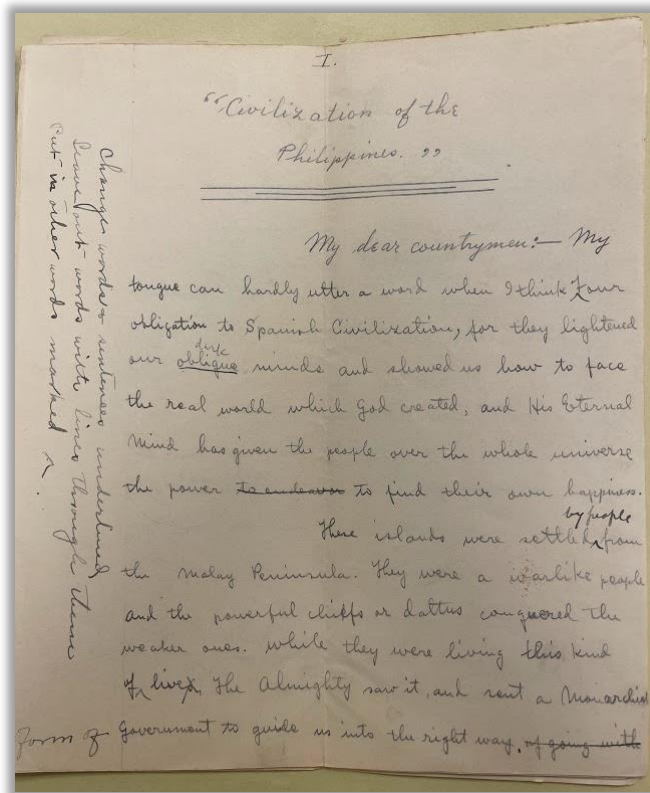 I.
"Civilization of the
Philippines."
My dear countrymen:— My
tongue can hardly utter a word when I think ^ our
obligation to Spanish Civilization, for they lightened
dark
our oblique minds and showed us how to face
the real world which God created, and His Eternal
Mind has given the people over the whole universe
the power to endeavor to find their own happiness.
by people
These islands were settled ^ from
the Malay Peninsula. They were a warlike people
and the powerful chiefs or dattus conquered the
weaker ones. While they were living this kind
of ^ lives, The Almighty saw it, and sent a Monarchial
form of Government to guide us into the right way. of going with
Change words & sentences underlined
Leave out words with lines through them
Put in other words marked ^.